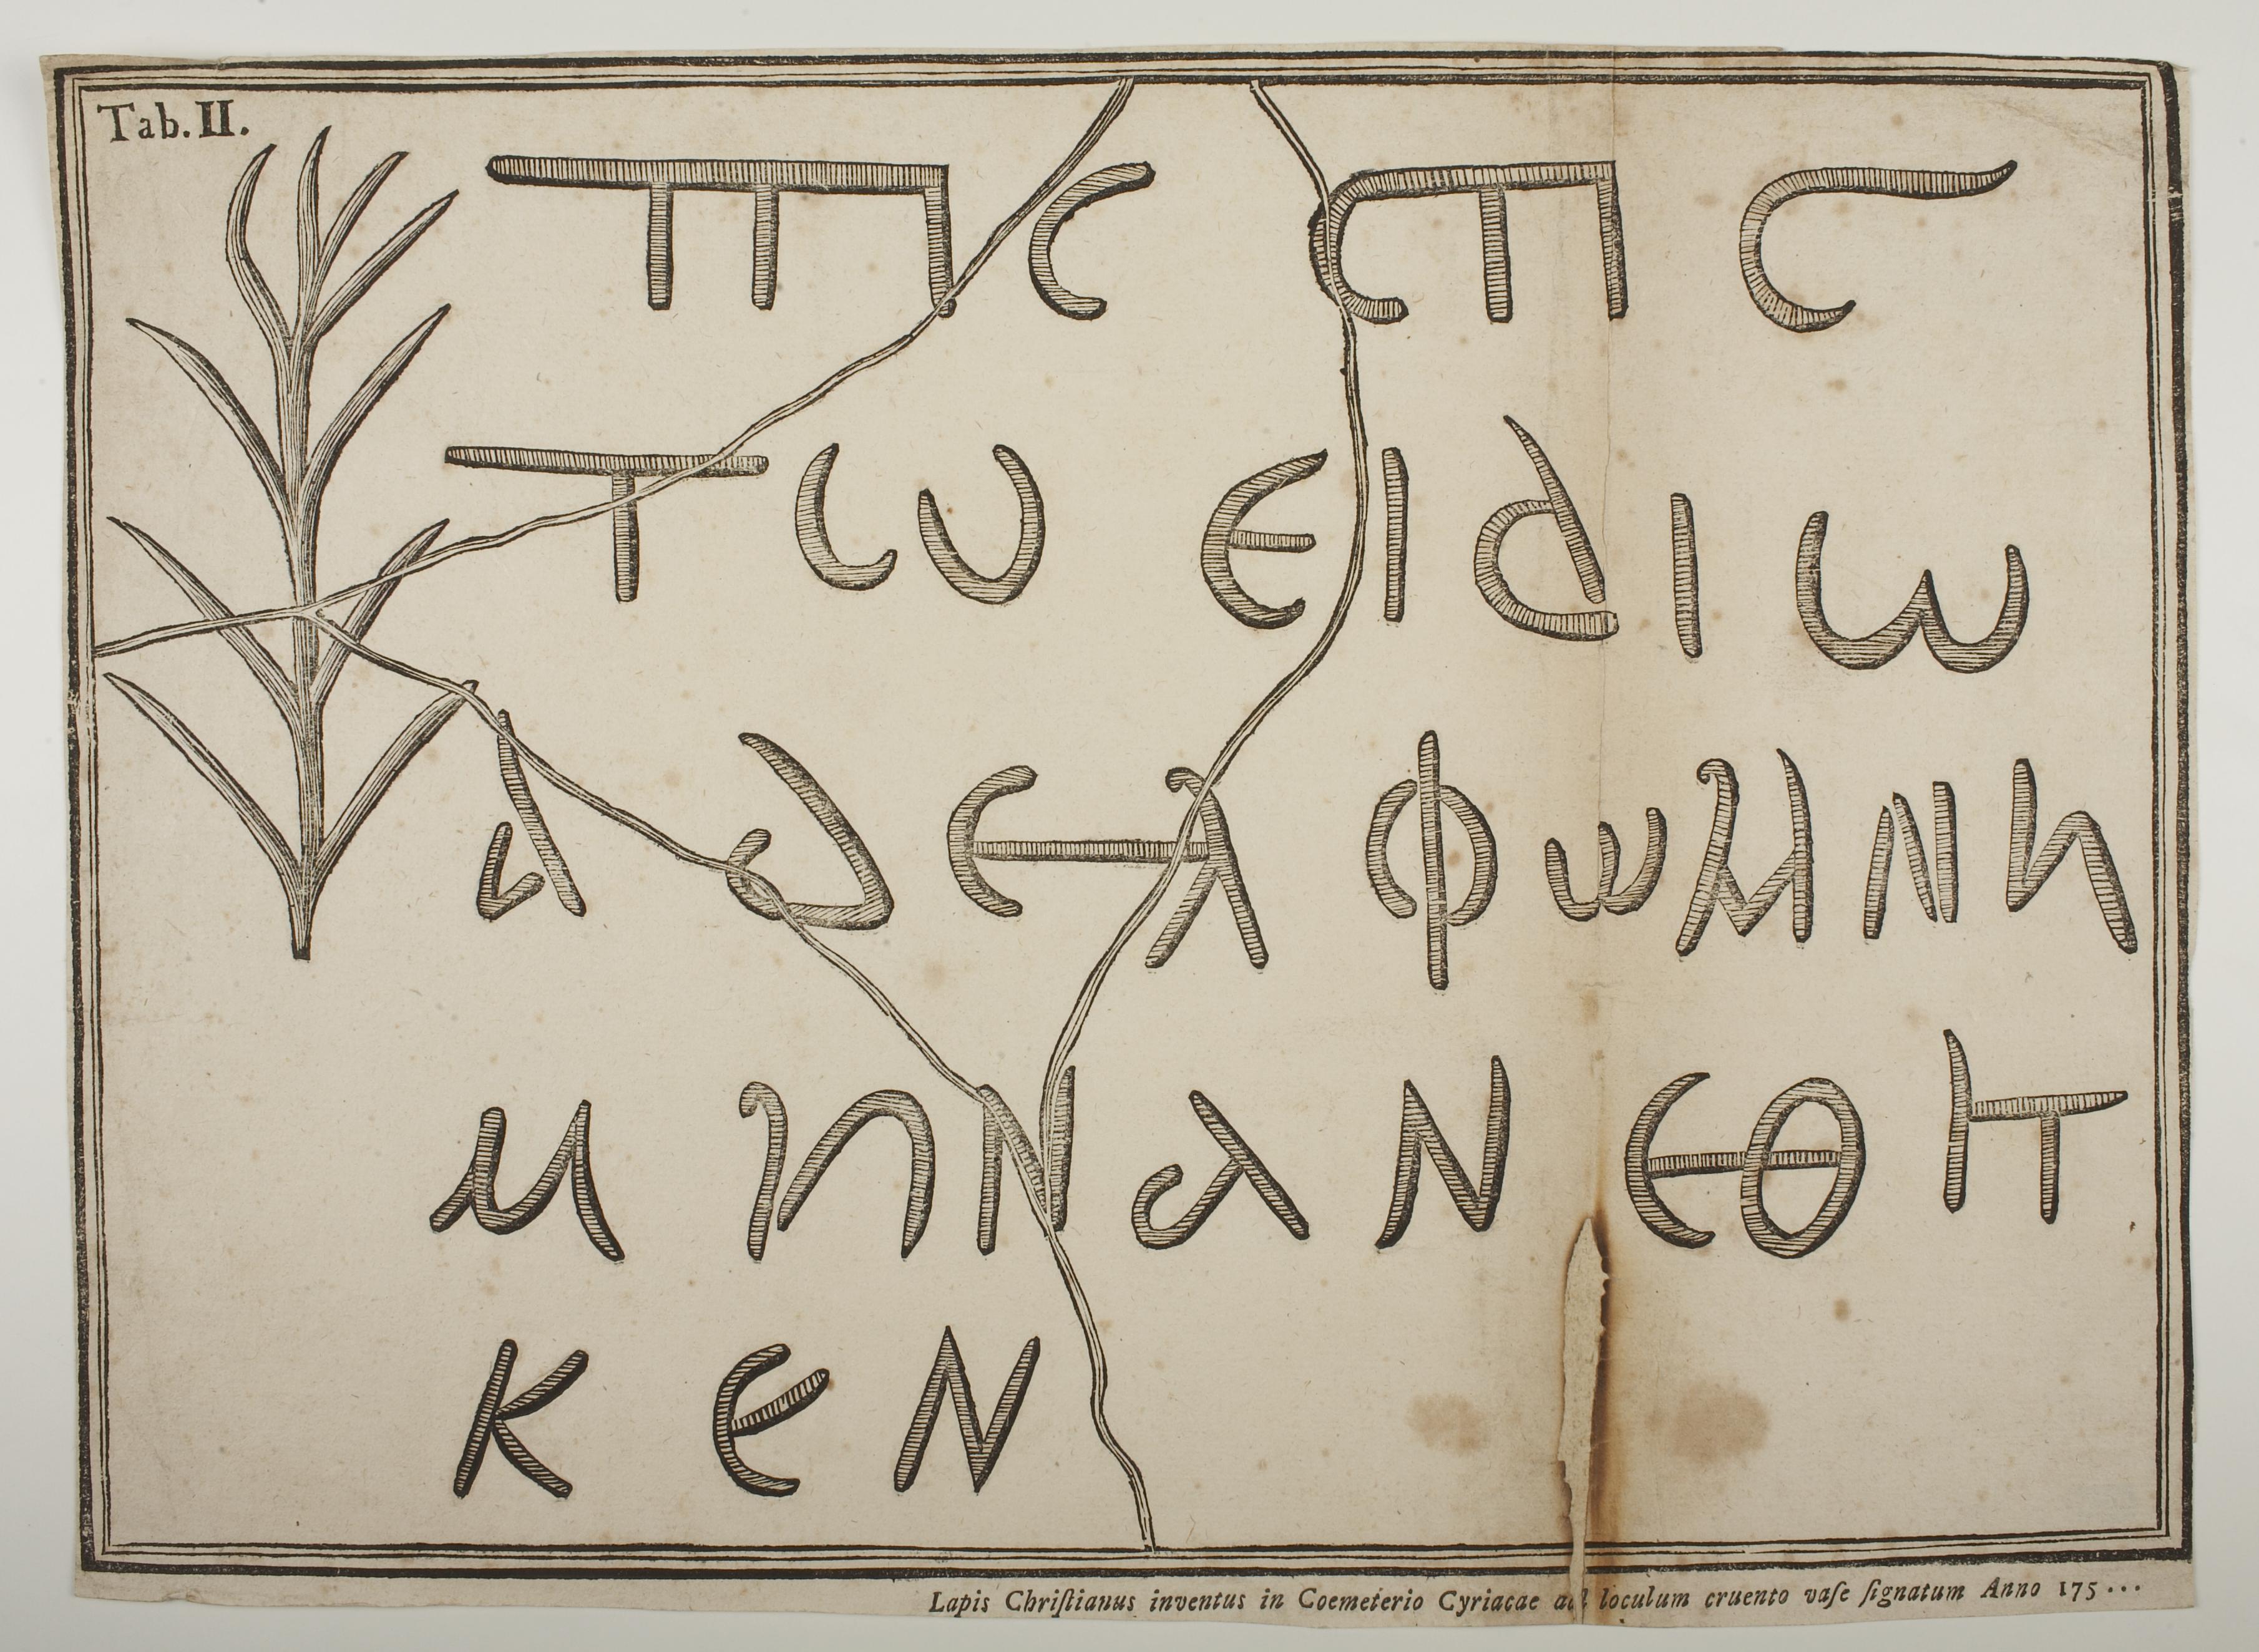 Tab. II.
ΤⲰ ЄΙΔΙⲰ
ΑΔЄΛΦⲰΜΝΗ
ΜΗΝΑΝЄΘΗ
ΚЄΝ
Lapis Chriſtianus inventus in Coemeterio Cyriacae ad loculum cruento vaſe ſignatum Anno 175...